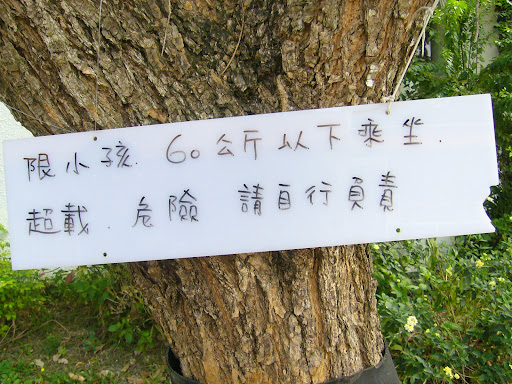 限小孩. 60公斤以下乘坐.
超載. 危險 請自行負責